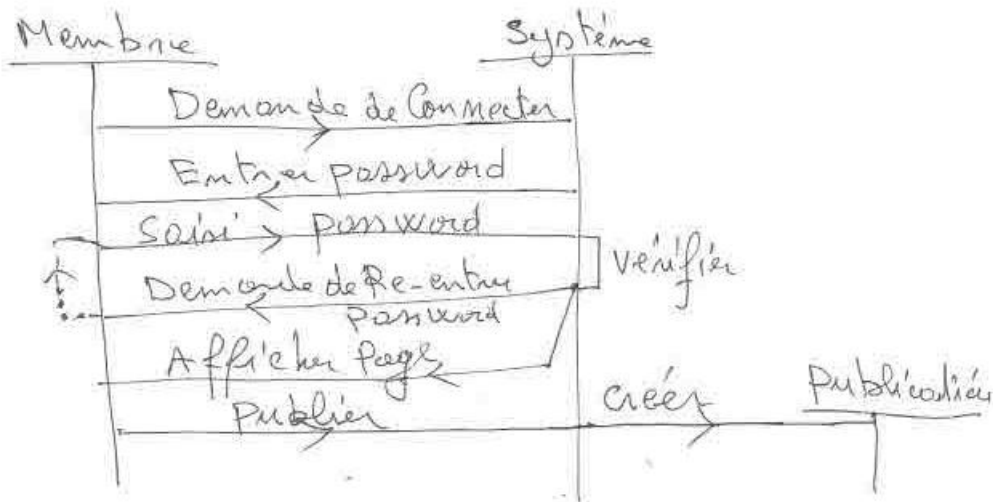 Membre
Système
Demande de Connecter
Entrer password
Saisi password
vérifier
Demande de Re-entrer
password
Afficher Page
publier
créer
publication